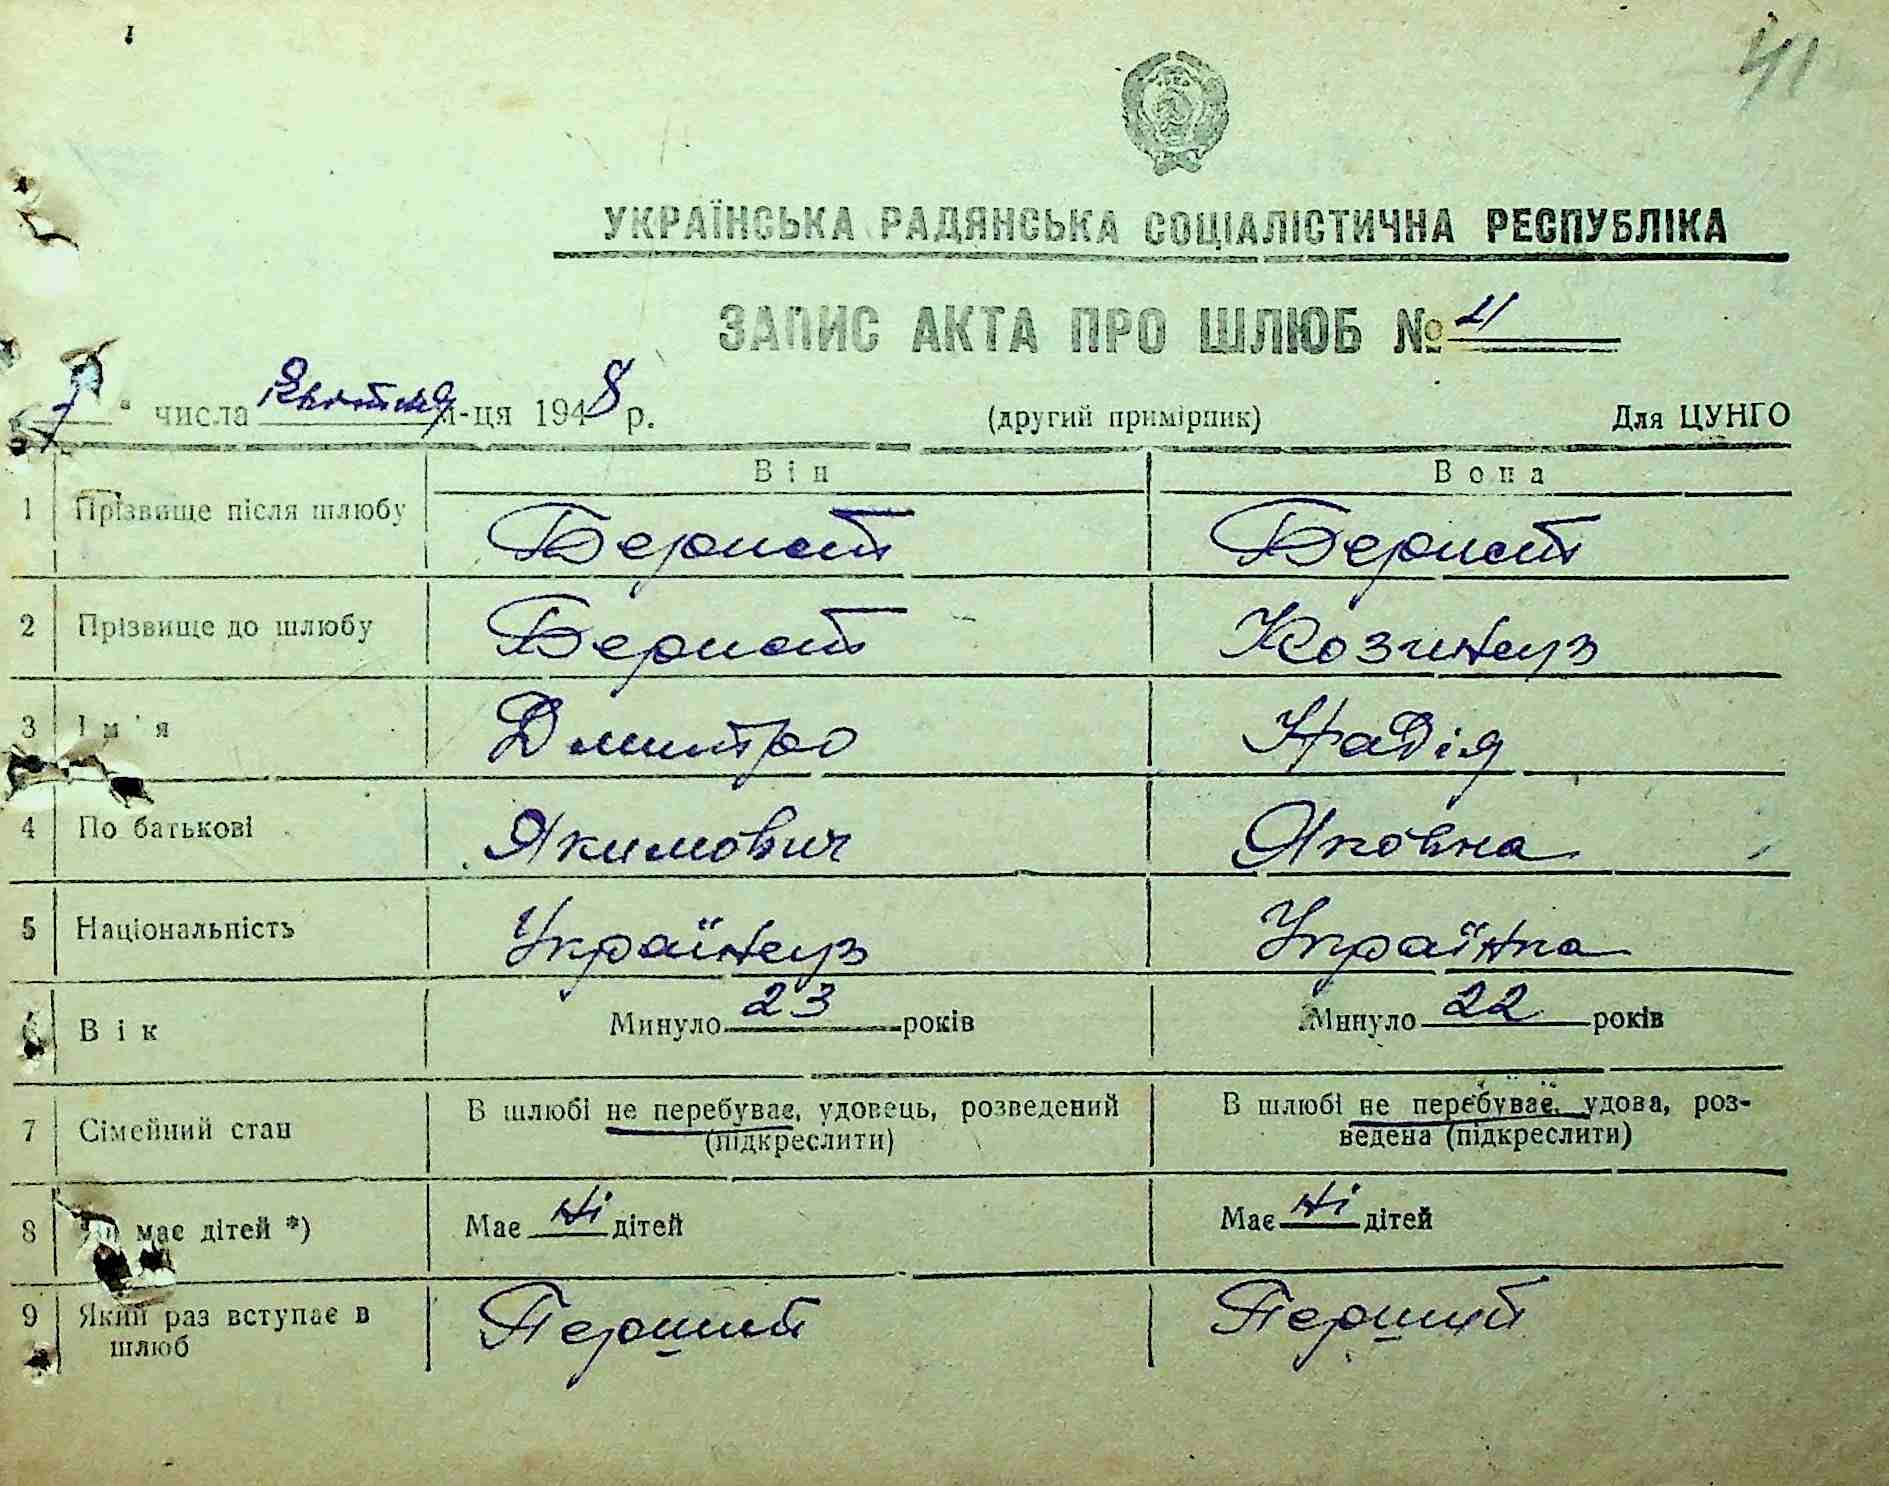 41
УКРАЇНСЬКА РАДЯНСЬКА СОЦІАЛІСТИЧНА РЕСПУБЛІКА
ЗАПИС АКТА ПРО ШЛЮБ № 11
"7" числа Квітня м-ця 1948 р. (другий примірник) Для ЦУНГО
Він Вона
1 Прізвище після шлюбу Берест Берест
2 Прізвище до шлюбу Берест
3 Ім'я Дмитро Надія
4 По батькові Якимович Яковна
5 Національність Українец Українка
6 Вік Минуло 23 років Минуло 22 років
7 Сімейний стан В шлюбі не перебуває, удовець, розведений (підкреслити) В шлюбі не перебуває, удова, роз-
ведена (підкреслити)
8 Чи має дітей *) Має Ні дітей Має Ні дітей
9 Який раз вступає в шлюб Перший Перший